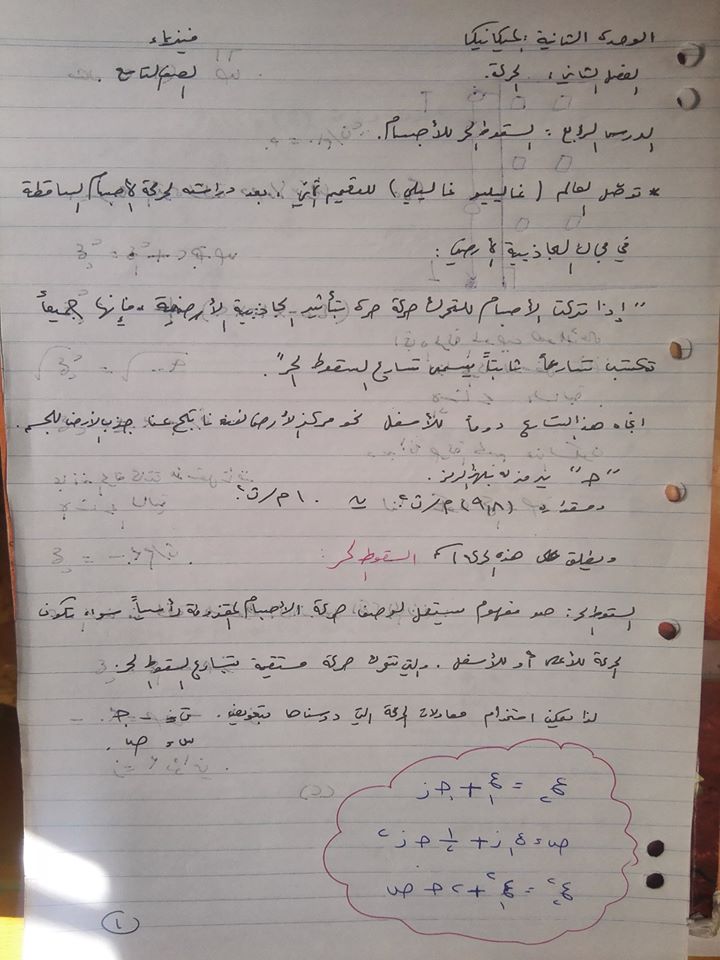 الوحدة الثانية : الميكانيكا فيزياء
الفصل الثاني : الحركة. الصف التاسع
الدرس الرابع : السقوط الحر للأجسام.
* توصّل العالم (غاليليو غاليلي) للتعميم الآتي ، بعد دراسته لحركة الأجسام الساقطة
في مجال الجاذبية الأرضية :
" إذا تركت الأجسام للتحرك حركة حرة بتأثير الجاذبية الأرضية ، فإنها جميعاً
تكتسب تسارعاً ثابتاً يسمى تسارع السقوط الحر".
اتجاه هذا التسارع دوماً للأسفل نحو مركز الأرض لأنه ناتج عن جذب الأرض للجسم.
"جـ" يرمز له بالرمز.
ومقداره (٩,٨) م/ث² ≈ ١٠ م/ث²
ويطلق على هذه الحركة السقوط الحر :
السقوط الحر: هو مفهوم يستعمل لوصف حركة الأجسام المقذوفة رأسياً سواء تكون
الحركة للأعلى أو للأسفل. والتي تتحرك حركة مستقيمة بتسارع السقوط الحر.
لذا يمكن استخدام معادلات الحركة التي درسناها بتعويض. ت = جـ.
س = ص.
ع₂ = ع₁ + جـ ز
ص = ع₁ ز + ١/٢ جـ ز²
ع₂² = ع₁² + ٢ جـ ص
١